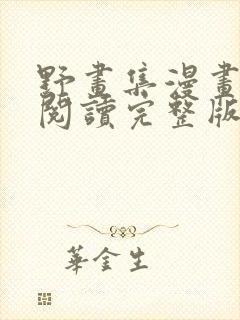 野畫集漫畫
閱讀完整版
華金生